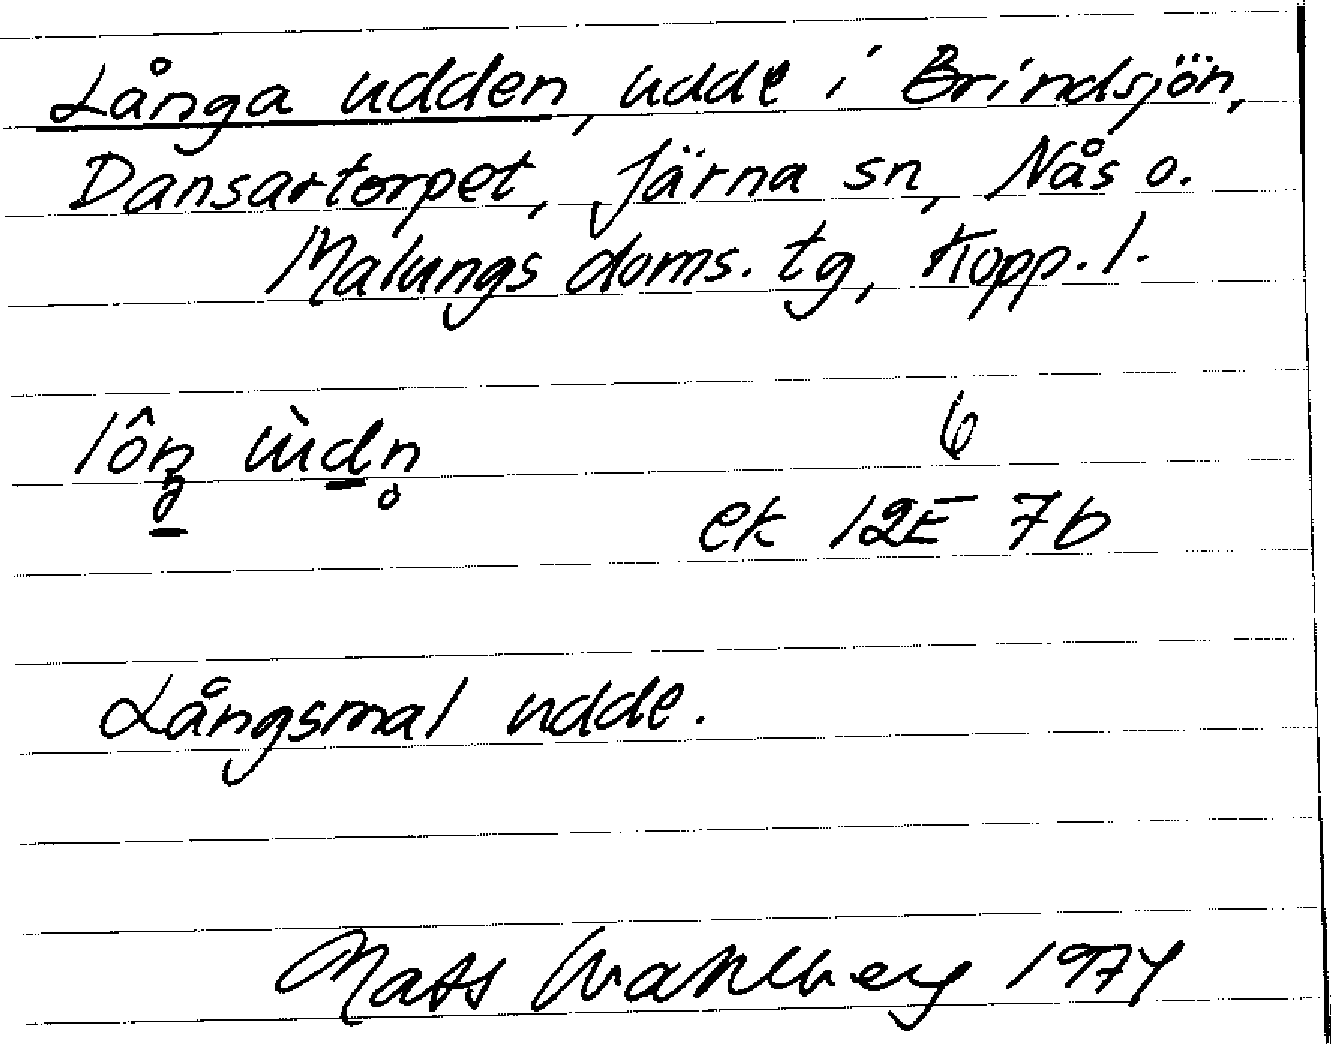 Långa udden, udde i Brindsjön,
Dansartorpet, Järna sn, Nås o.
Malungs doms. tg, Kopp. l.
ek 12E 7b
Långsmal udde.
Mats Wahlberg 1974